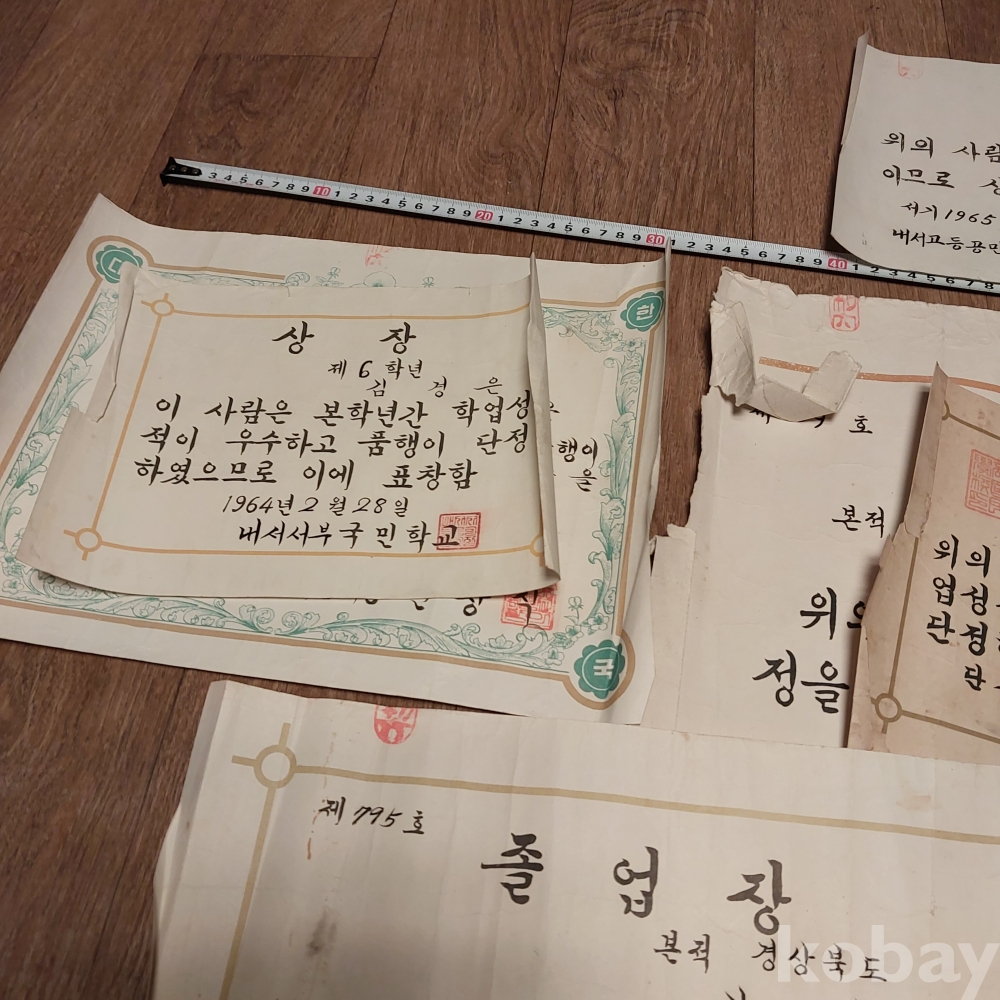 3 4 5 6 7 8 9 10 1 2 3 4 5 6 7 8 9 20 1 2 3 4 5 6 7 8 9 30 1 2 3 4 5 6 7 8 9 40 1 2 3 4 5 6 7 8
위의 사람
이므로
서기 1965
내서고등공민
한
국
상 장
제 6 학년
김 경 은
이 사람은 본학년간 학업성
적이 우수하고 품행이 단정
하였으므로 이에 표창함
1964년 2월 28일
내서서부국민학교
행이
을
호
본적
위의
정을
위의
업성
단정
단
제 795 호
졸 업 장
본적 경상북도
kobay